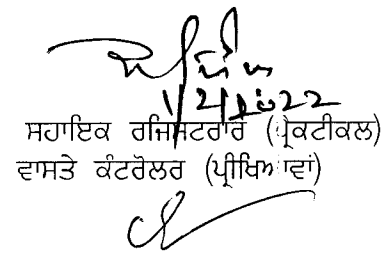 1/2/2022
ਸਹਾਇਕ ਰਜਿਸਟਰਾਰ (ਪ੍ਰੈਕਟੀਕਲ)
ਵਾਸਤੇ ਕੰਟਰੋਲਰ (ਪ੍ਰੀਖਿਆਵਾਂ)